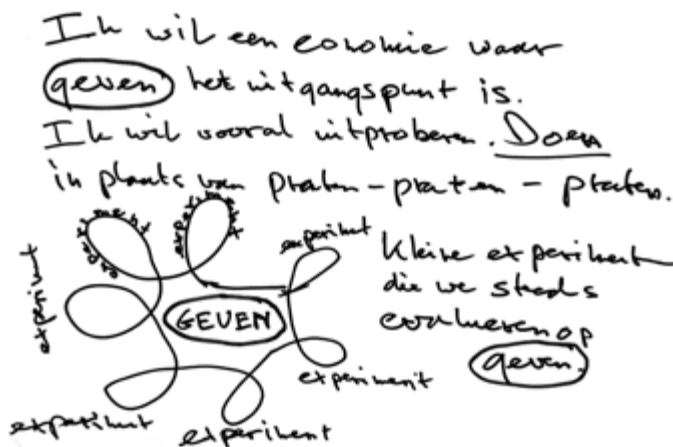 Ik wil een economie waar
geven het uitgangspunt is.
Ik wil vooral uitproberen. Doen
in plaats van praten - praten - praten.
experiment
experiment
experiment
experiment
GEVEN
experiment
experiment
experiment
Kleine experiment
die we steeds
evalueren op
geven.